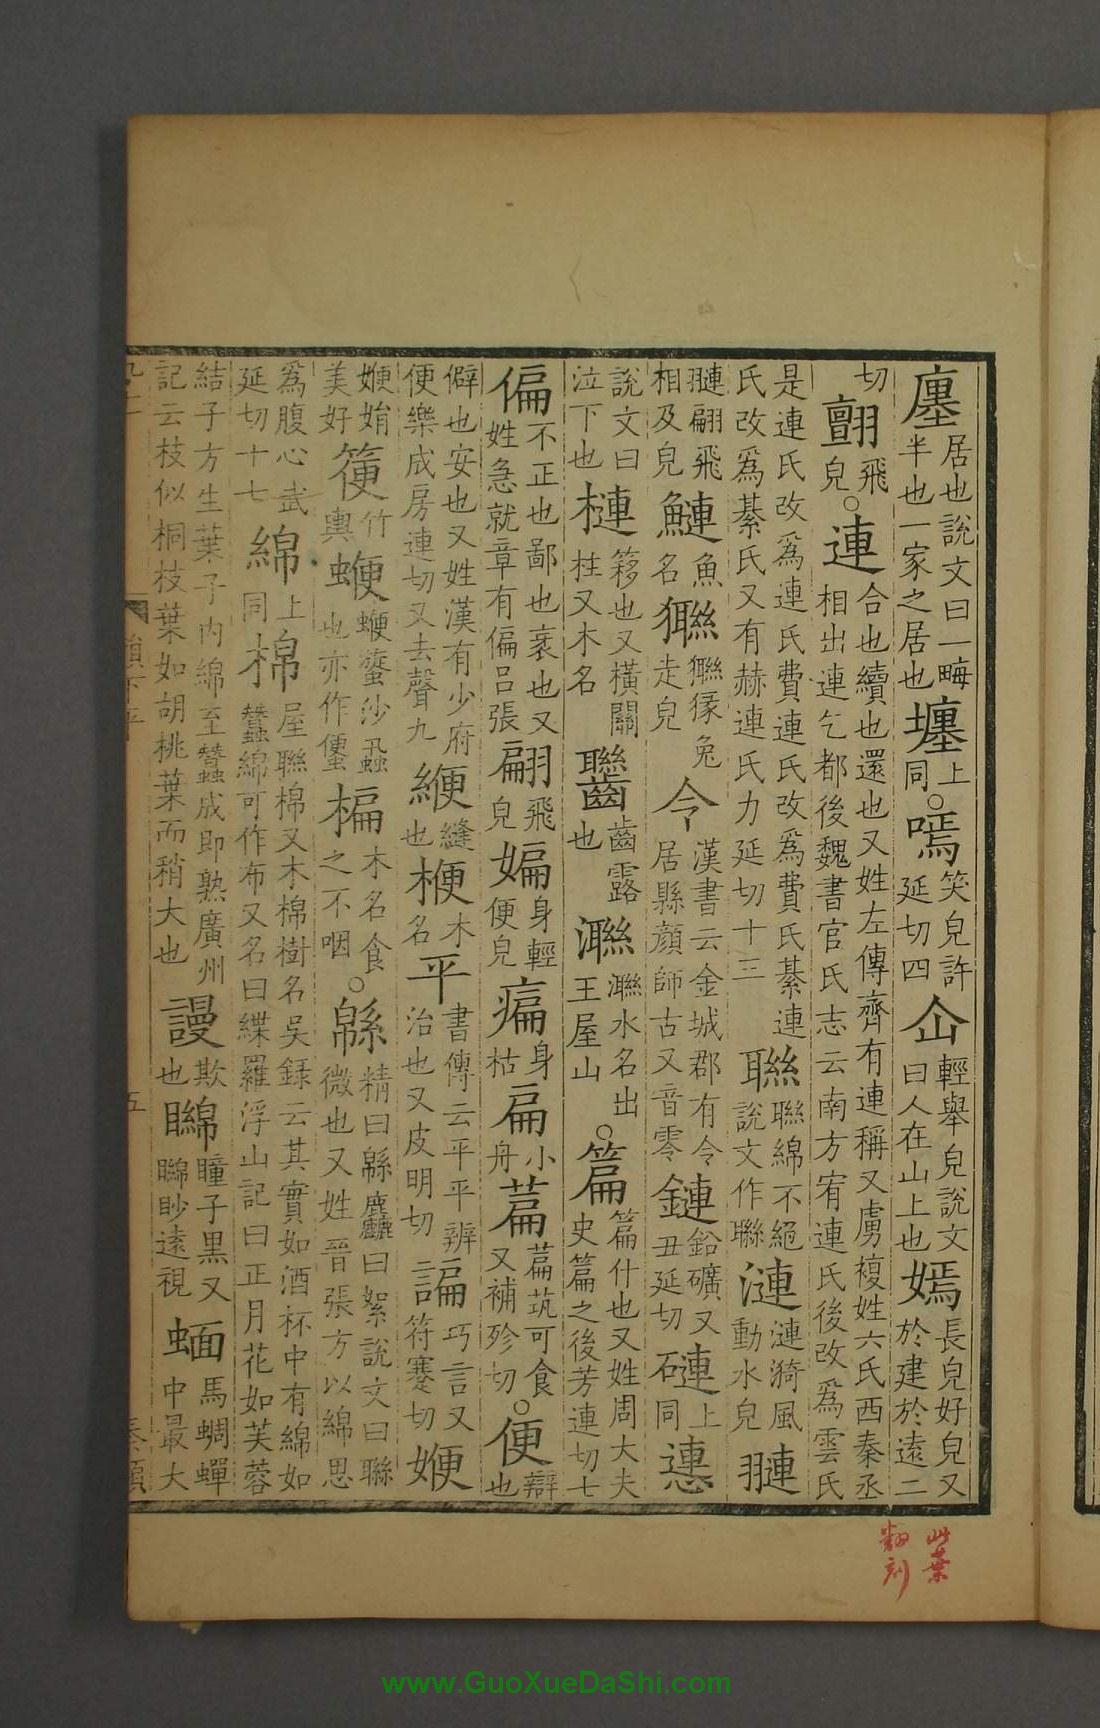 廛居也說文曰一畮半也一家之居也㙻上同○嘕笑皃許延切四仚輕舉皃說文曰人在山上也嫣長皃好皃又於建於遠二
切䎒飛皃○連合也續也還也又姓左傳齊有連稱又虜複姓六氏西秦丞相出連乞都後魏書官氏志云南方宥連氏後改爲雲氏
是連氏改爲連氏費連氏改爲費氏綦連氏改爲綦氏又有赫連氏力延切十三聯聯綿不絕說文作聯漣漣漪風動水皃翴
翴翩飛相及皃鰱魚名獮走皃令漢書云金城郡有令居縣顔師古又音零鏈鉛礦又丑延切䃛上同㦁
說文曰泣下也槤簃也又橫關柱又木名齒露也㶌㶌水名出王屋山○篇篇什也又姓周大夫史篇之後芳連切七
偏不正也鄙也衺也又姓急就章有偏呂張翩飛皃媥身輕便皃㾫身枯扁小舟萹萹茿可食又補殄切○便辯也
僻也安也又姓漢有少府便樂成房連切又去聲九緶縫也楩木名平書傳云平平辨治也又皮明切諞巧言又符蹇切㛹
㛹娟美好箯竹輿蝙也亦作䗤楄木名食之不咽○緜精曰緜麤曰絮說文曰聯微也又姓晉張方以綿思
爲腹心武延切十七綿上同棉屋聯棉又木棉樹名吳錄云其實如酒杯中有綿如蠶綿可作布又名曰緤羅浮山記曰正月花如芙蓉
結子方生葉子內綿至蠶成即熟廣州記云枝似桐枝葉如胡桃葉而稍大也謾欺也矊瞳子黑又矊眇遠視蝒馬蜩蟬中最大
五
此葉
翻刻
www.GuoXueDaShi.com